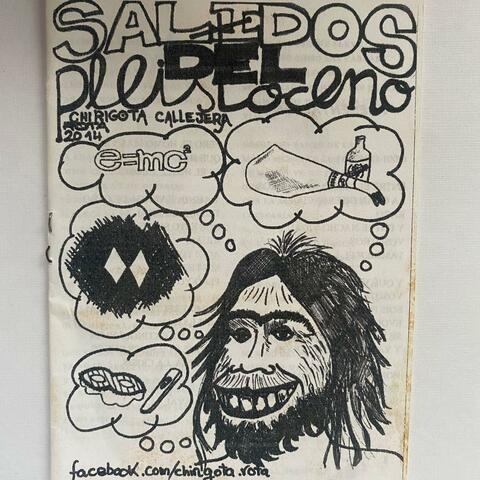 SALIDOS
DEL
pleistoceno
CHIRIGOTA CALLEJERA
ROTA
2014
e=mc²
facebook.com/chirigota.rota